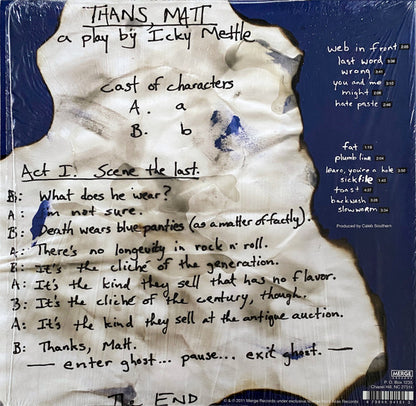 THANS, MATT
a play by Icky Mettle
Cast of characters
A. a
B. b
Act I: Scene the last:
B: What does he wear?
A: I'm not sure.
B: Death wears blue panties (as a matter of factly).
A: There's no longevity in rock n' roll.
B: It's the cliché of the generation.
A: It's the kind they sell that has no flavor.
B: It's the cliché of the century, though.
A: It's the kind they sell at the antique auction.
B: Thanks, Matt.
— enter ghost... pause... exit ghost. —
The END
web in front 2:09
last word
wrong 2:41
you and me
might
hate paste 2:46
fat 1:19
plumb line 2:04
learo, you're a hole 3:50
sickfile 1:43
toast 4:37
backwash 3:08
slow worm 3:34
Produced by Caleb Southern
MERGE
P. O. Box 1235
Chapel Hill, NC 27514
℗ & © 2011 Merge Records under exclusive license from Alias Records